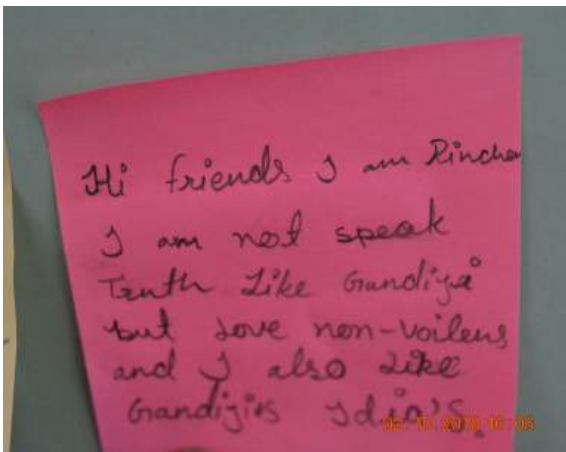 Hi friends I am Rinchen
I am not speak
Truth Like Gandiji
but Love non-voilens
and I also Like
Gandijis Idia's.